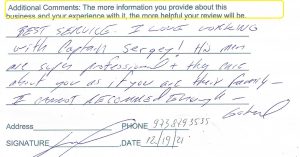 Additional Comments: The more information you provide about this
business and your experience with it, the more helpful your review will be.
BEST SERVICE. I LOVE WORKING
WITH CAPTAIN SERGEY! HIS MEN
ARE SUPER PROFESSIONAL & THEY CARE
ABOUT YOU AS IF YOU ARE THEIR FAMILY –
I CANNOT RECOMMEND ENOUGH –
Address PHONE
SIGNATURE DATE 12/19/21